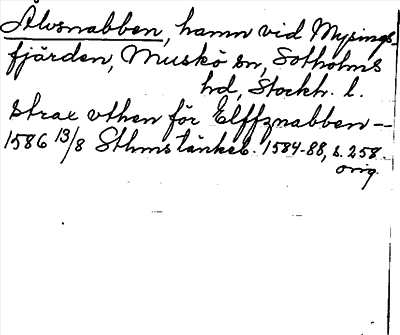 Älvsnabben, hamn vid Mysings-
fjärden, Muskö sn, Sotholms
hd, Stockh. l.
strax vthen för Elffznabben —
1586 13/8 Sthms tänkeb. 1584-88, s. 258.
orig.